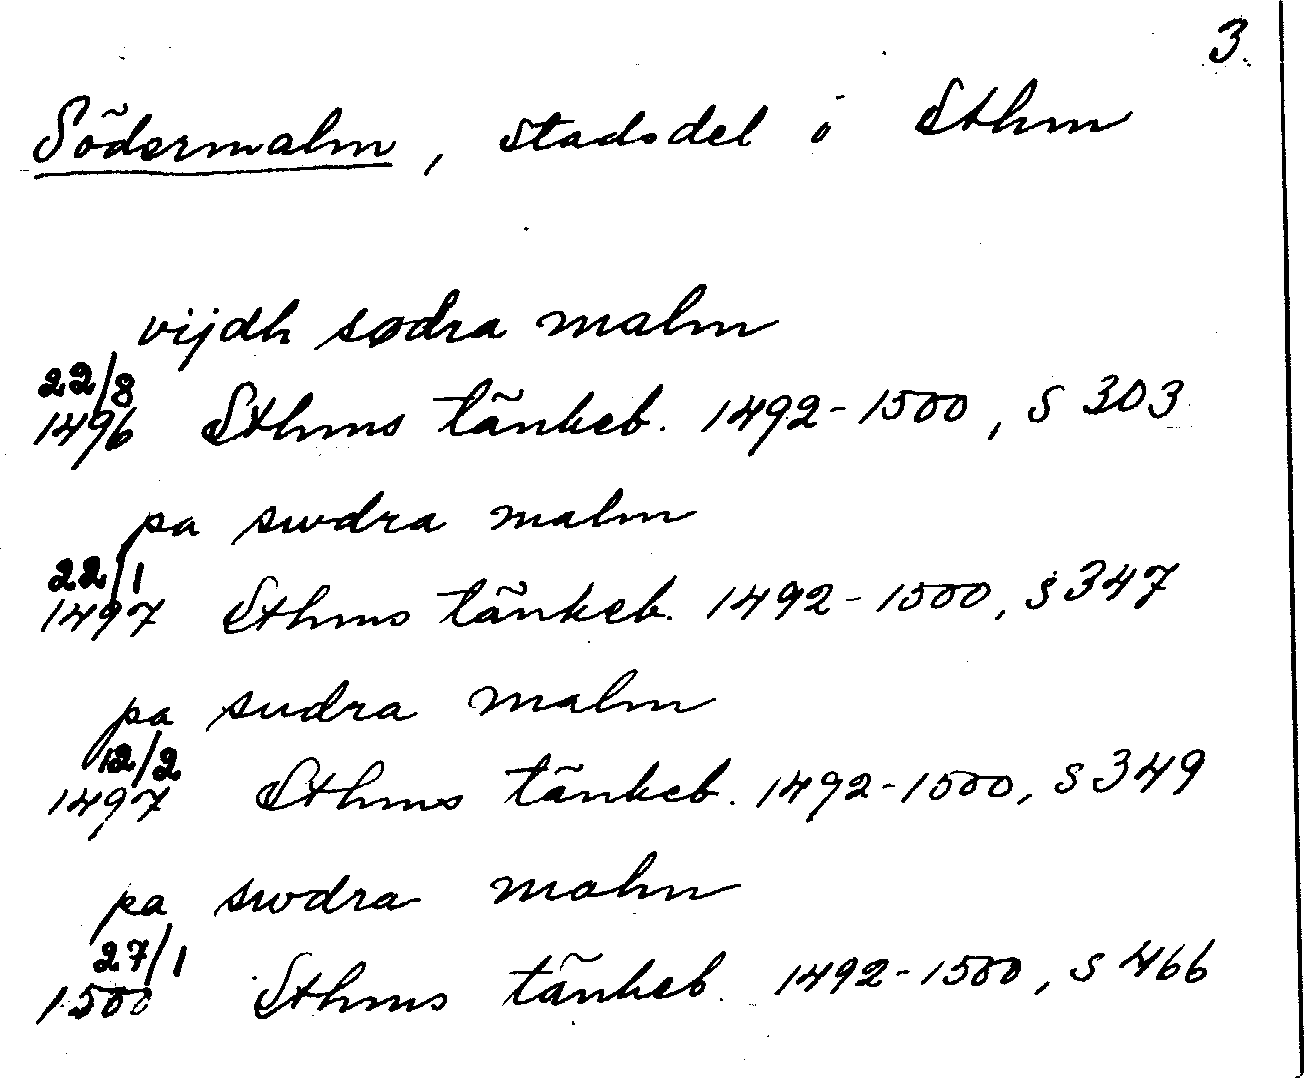 3.
Södermalm, stadsdel i Sthm
vijdh sødra malm
22/8
1496 Sthms tänkeb. 1492-1500, s 303
pa swdra malm
22/1
1497 Sthms tänkeb. 1492-1500, s 347
pa sudra malm
12/2
1497 Sthms tänkeb. 1492-1500, s 349
pa swdra malm
27/1
1500 Sthms tänkeb. 1492-1500, s 466